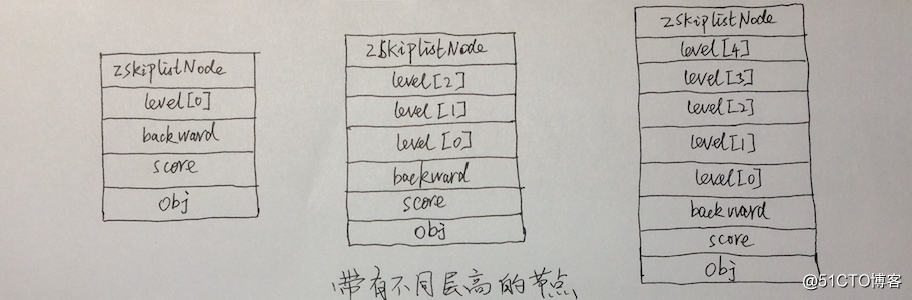 zskiplistNode
level[0]
backward
score
obj
zskiplistNode
level[2]
level[1]
level[0]
backward
score
obj
zskiplistNode
level[4]
level[3]
level[2]
level[1]
level[0]
backward
score
obj
带有不同层高的节点
@51CTO博客